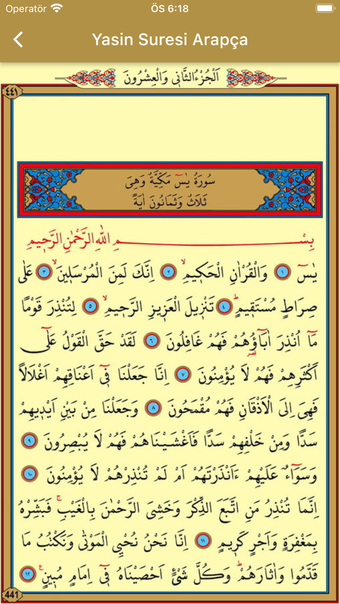 Operatör ÖS 6:18
Yasin Suresi Arapça
اَلْجُزْءُ الثَّانِي وَالْعِشْرُونَ
٤٤١
سُورَةُ يٰسٓ مَكِّيَّةٌ وَهِيَ
ثَلَاثٌ وَثَمَانُونَ اٰيَةً
بِسْــــــمِ اللّٰهِ الرَّحْمٰنِ الرَّحِيمِ
يٰسٓ ١ وَالْقُرْاٰنِ الْحَكِيمِۙ ٢ اِنَّكَ لَمِنَ الْمُرْسَلِينَۙ ٣ عَلٰى
صِرَاطٍ مُسْتَقِيمٍۜ ٤ تَنْزِيلَ الْعَزِيزِ الرَّحِيمِۙ ٥ لِتُنْذِرَ قَوْمًا
مَٓا اُنْذِرَ اٰبَٓاؤُ۬هُمْ فَهُمْ غَافِلُونَ ٦ لَقَدْ حَقَّ الْقَوْلُ عَلٰٓى
اَكْثَرِهِمْ فَهُمْ لَا يُؤْمِنُونَ ٧ اِنَّا جَعَلْنَا ف۪ٓي اَعْنَاقِهِمْ اَغْلَالًا
فَهِيَ اِلَى الْاَذْقَانِ فَهُمْ مُقْمَحُونَ ٨ وَجَعَلْنَا مِنْ بَيْنِ اَيْدِيهِمْ
سَدًّا وَمِنْ خَلْفِهِمْ سَدًّا فَاَغْشَيْنَاهُمْ فَهُمْ لَا يُبْصِرُونَ ٩
وَسَوَٓاءٌ عَلَيْهِمْ ءَاَنْذَرْتَهُمْ اَمْ لَمْ تُنْذِرْهُمْ لَا يُؤْمِنُونَ ١٠
اِنَّمَا تُنْذِرُ مَنِ اتَّبَعَ الذِّكْرَ وَخَشِيَ الرَّحْمٰنَ بِالْغَيْبِۚ فَبَشِّرْهُ
بِمَغْفِرَةٍ وَاَجْرٍ كَرِيمٍ ١١ اِنَّا نَحْنُ نُحْيِ الْمَوْتٰى وَنَكْتُبُ مَا
قَدَّمُوا وَاٰثَارَهُمْۜ وَكُلَّ شَيْءٍ اَحْصَيْنَاهُ ف۪ٓي اِمَامٍ مُبِينٍ۟ ١٢
441